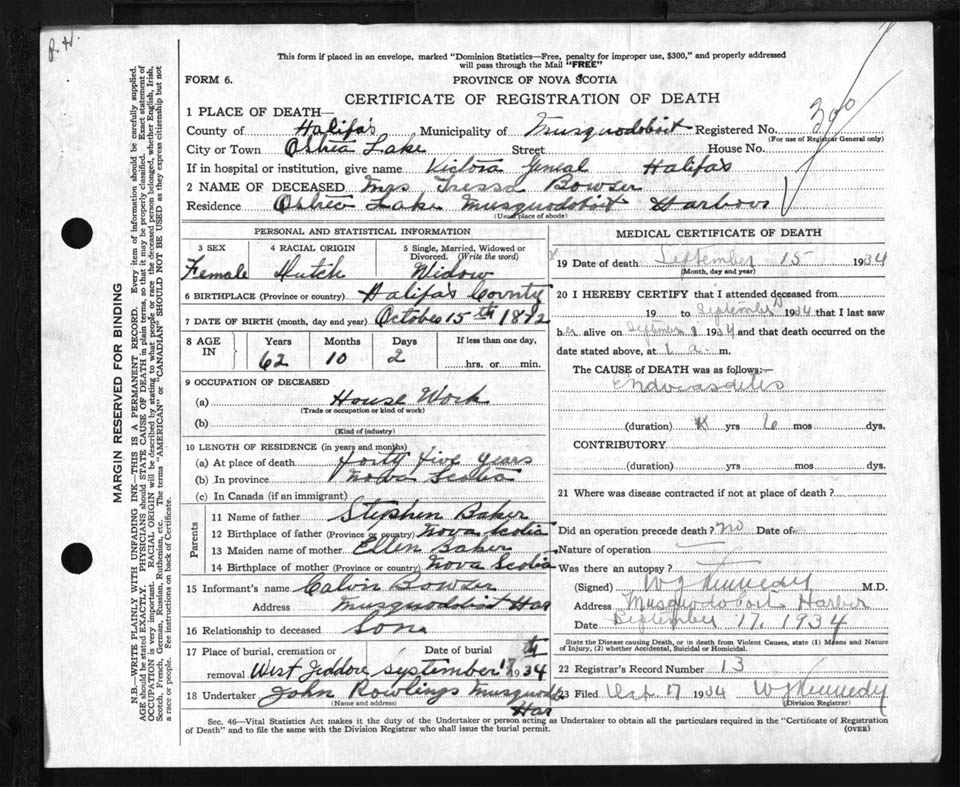 R.H.
This form if placed in an envelope, marked "Dominion Statistics—Free, penalty for improper use, $300," and properly addressed
will pass through the Mail "FREE"
FORM 6. PROVINCE OF NOVA SCOTIA
CERTIFICATE OF REGISTRATION OF DEATH
1 PLACE OF DEATH—
County of Halifax Municipality of Musquodoboit Registered No.
(For use of Registrar General only)
City or Town Lake Street House No.
If in hospital or institution, give name Victoria Halifax
2 NAME OF DECEASED Mrs Tressa Bowser
Residence Lake Musquodoboit Harbour
(Usual place of abode)
PERSONAL AND STATISTICAL INFORMATION
3 SEX 4 RACIAL ORIGIN 5 Single, Married, Widowed or
Divorced. (Write the word)
Female Dutch Widow
6 BIRTHPLACE (Province or country) Halifax County
7 DATE OF BIRTH (month, day and year) October 15th
8 AGE IN Years Months Days If less than one day,
62 10 2 hrs. or min.
9 OCCUPATION OF DECEASED
(a) House Work
(Trade or occupation or kind of work)
(b)
(Kind of industry)
10 LENGTH OF RESIDENCE (in years and months)
(a) At place of death forty five years
(b) In province Nova Scotia
(c) In Canada (if an immigrant)
Parents
11 Name of father Stephen Baker
12 Birthplace of father (Province or country) Nova Scotia
13 Maiden name of mother Ellen Baker
14 Birthplace of mother (Province or country) Nova Scotia
15 Informant's name Calvin Bowser
Address Musquodoboit Har
16 Relationship to deceased Son
17 Place of burial, cremation or removal Date of burial
West Jeddore September 17th 1934
18 Undertaker John Rowlings Musquodo
Har
(Name and address)
MEDICAL CERTIFICATE OF DEATH
19 Date of death September 15 1934
(Month, day and year)
20 I HEREBY CERTIFY that I attended deceased from
19 to September 1934 that I last saw
her alive on September 1934 and that death occurred on
date stated above, at 1 a. m.
The CAUSE OF DEATH was as follows:—
(duration) yrs 6 mos dys.
CONTRIBUTORY
(duration) yrs. mos. dys.
21 Where was disease contracted if not at place of death?
Did an operation precede death? no Date of
Nature of operation
Was there an autopsy?
(Signed) W J Kennedy M.D.
Address Musquodoboit Harbor
Date September 17, 1934
State the Disease causing Death, or in death from Violent Causes, state (1) Means and Nature
of Injury, (2) whether Accidental, Suicidal or Homicidal.
22 Registrar's Record Number 13
23 Filed 17 1934 W J Kennedy
(Division Registrar)
Sec. 46—Vital Statistics Act makes it the duty of the Undertaker or person acting as Undertaker to obtain all the particulars required in the "Certificate of Registration
of Death" and to file the same with the Division Registrar who shall issue the burial permit. (OVER)
MARGIN RESERVED FOR BINDING
N.B.—WRITE PLAINLY WITH UNFADING INK—THIS IS A PERMANENT RECORD. Every item of information should be carefully supplied.
AGE should be stated EXACTLY. PHYSICIANS should STATE CAUSE OF DEATH in plain terms, so that it may be properly classified. Exact statement of
OCCUPATION is very important. RACIAL ORIGIN will be described by stating to what people or race the deceased person belonged, whether English, Irish,
Scotch, French, German, Russian, Ruthenian, etc. The terms "AMERICAN" or "CANADIAN" SHOULD NOT BE USED as they express citizenship but not
a race or people. See instructions on back of Certificate.